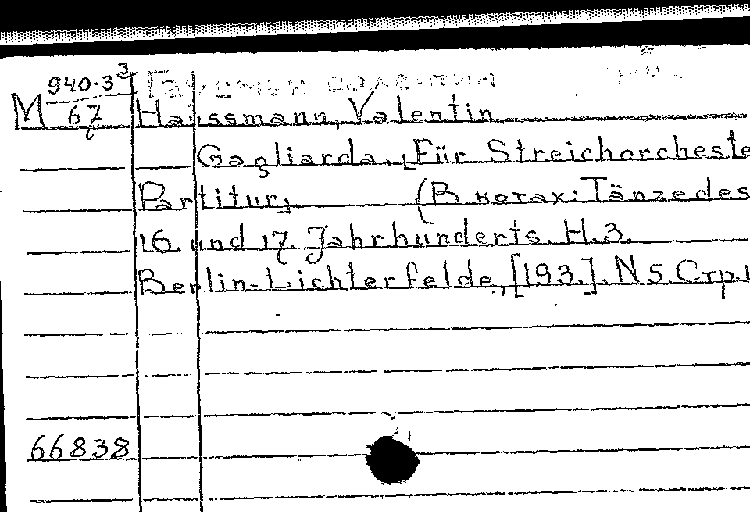 М 940-3³
67
Гаусман Валентин
Haussmann, Valentin
Gagliarda. [Für Streichorcheste
Partitur] (В нотах: Tänze des
16. und 17. Jahrhunderts. H.3.
Berlin-Lichterfelde, [193.]. N 5. Стр.1
66838